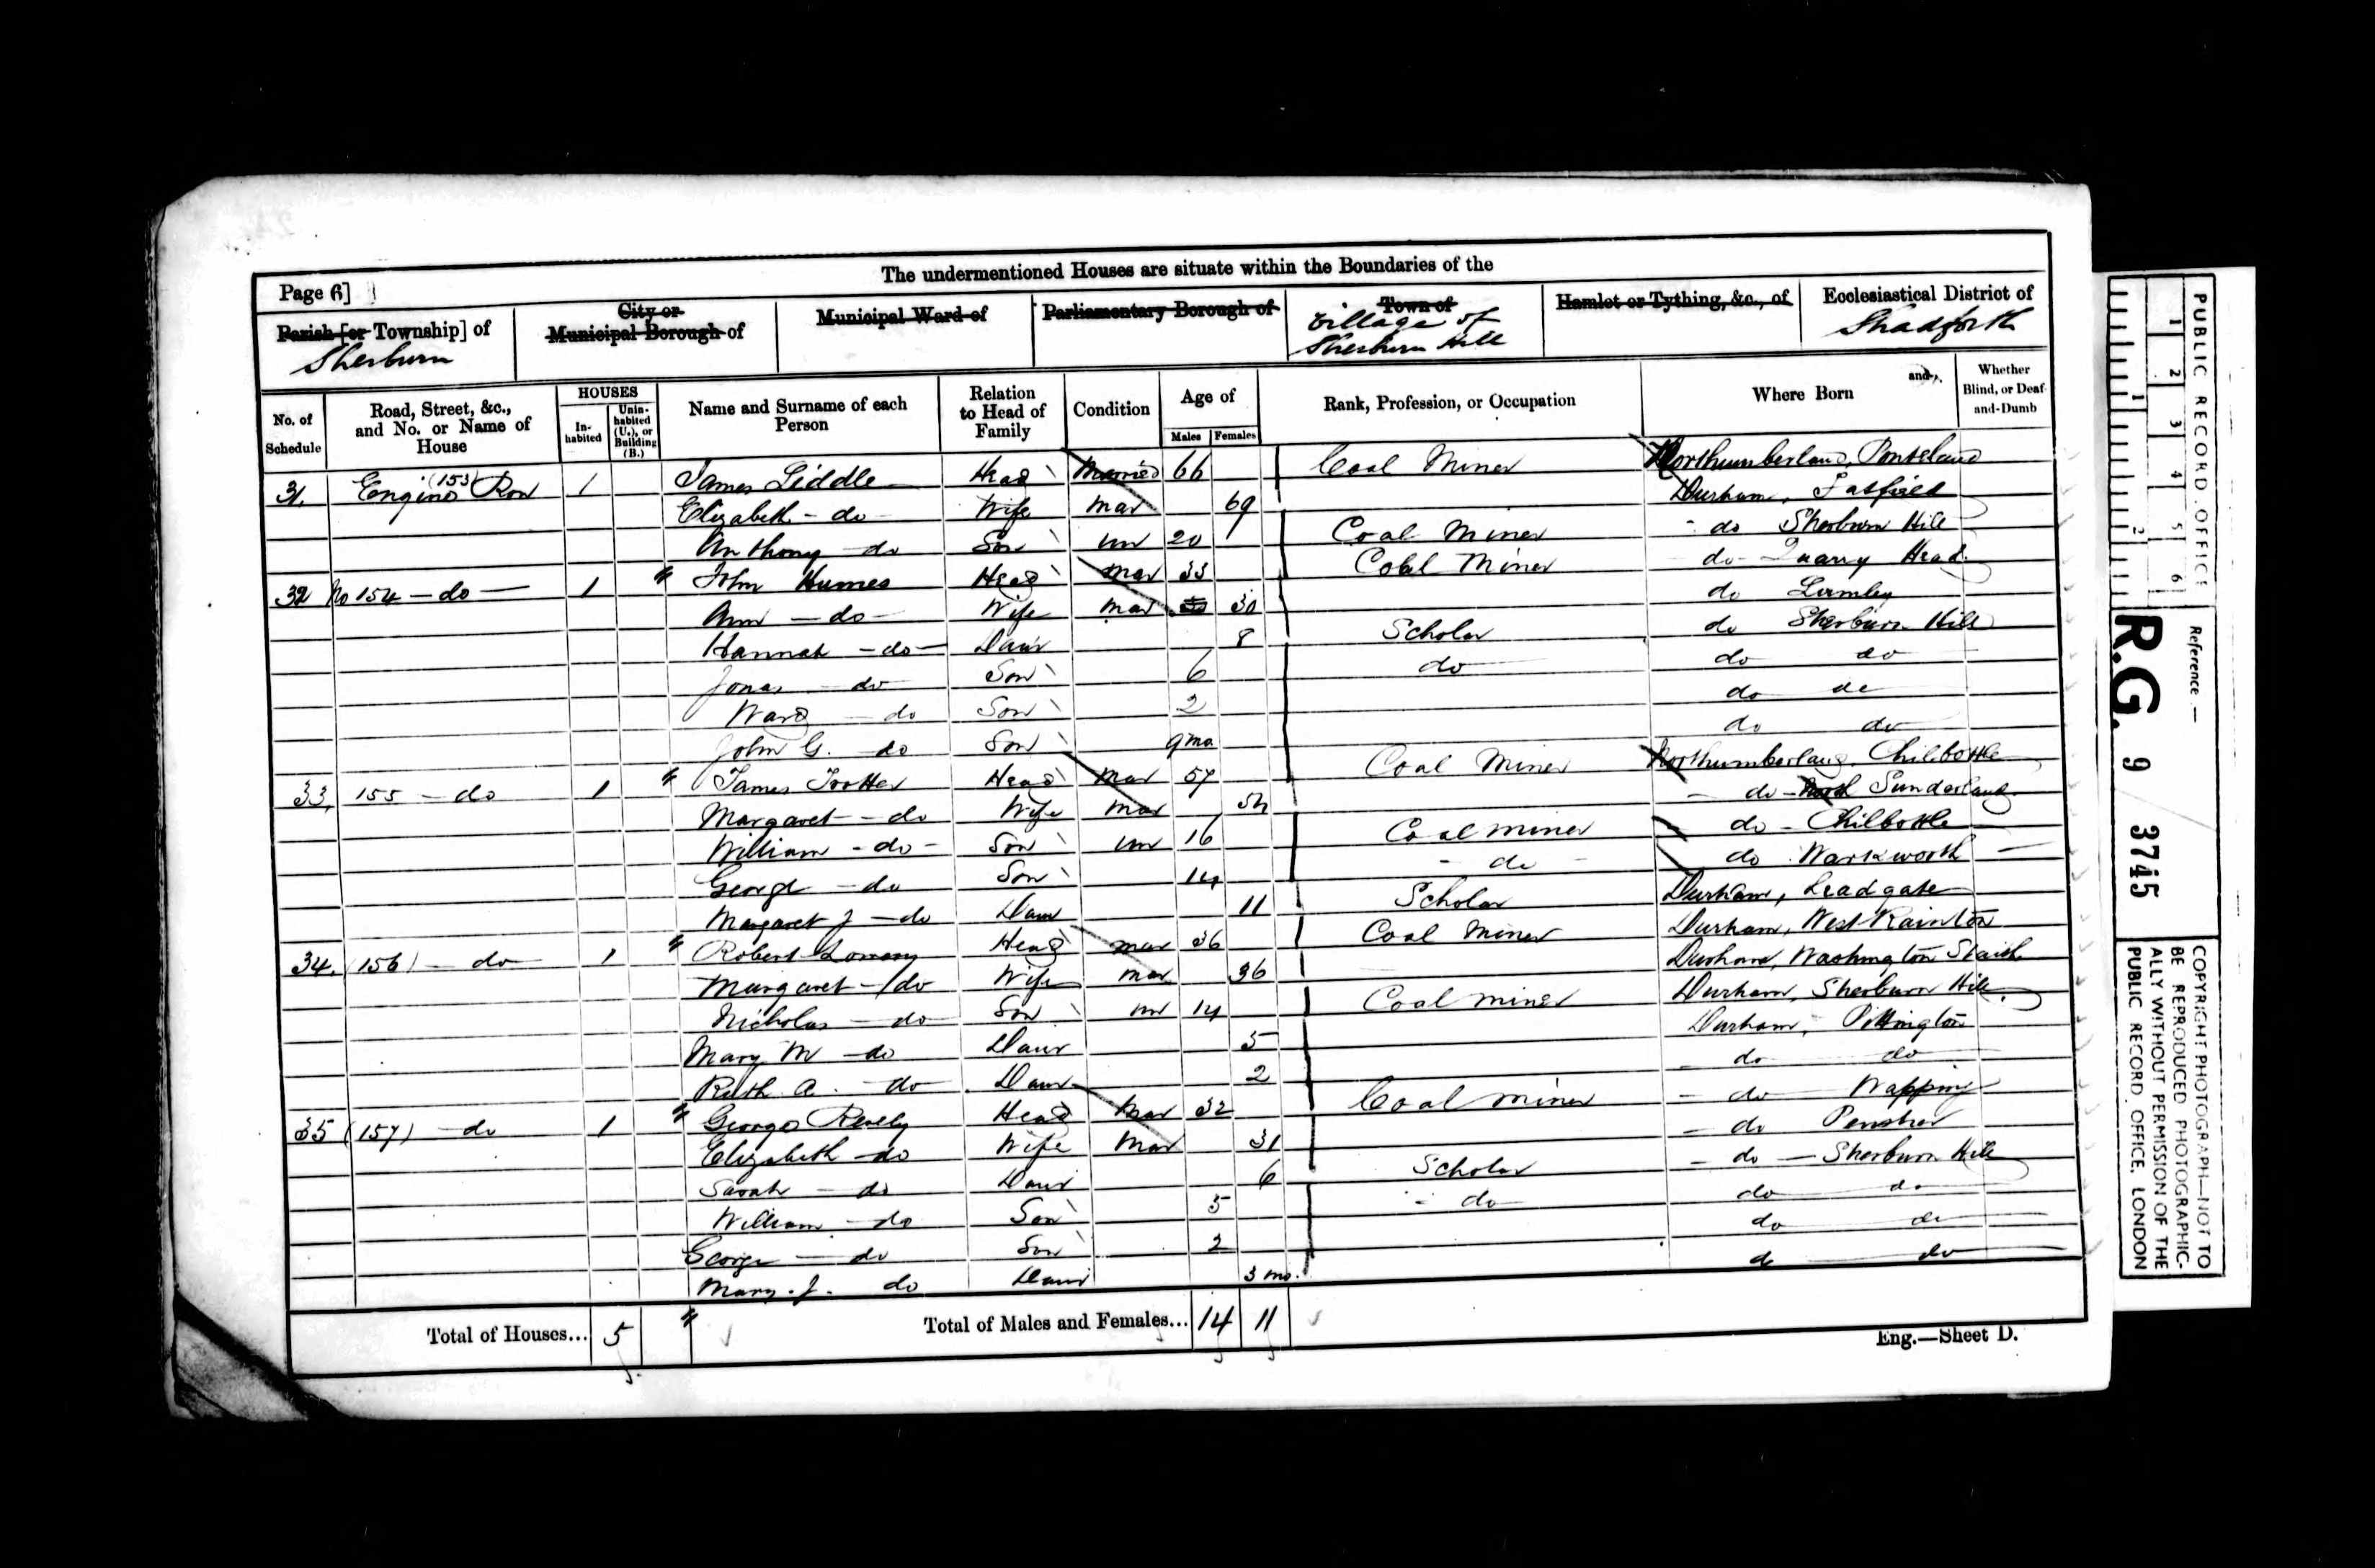 The undermentioned Houses are situate within the Boundaries of the
Page 6]
Parish [or Township] of
Sherburn
City or
Municipal Borough of
Municipal Ward of
Parliamentary Borough of
Town of
Village of
Sherburn Hill
Hamlet or Tything, &c., of
Ecclesiastical District of
Shadforth
No. of Schedule
Road, Street, &c., and No. or Name of House
HOUSES
In-habited
Unin-habited (U.), or Building (B.)
Name and Surname of each Person
Relation to Head of Family
Condition
Age of
Males
Females
Rank, Profession, or Occupation
Where Born
and
Whether Blind, or Deaf-and-Dumb
31. (153) Engine Row 1 James Liddle Head Married 66 Coal Miner Northumberland, Ponteland
Elizabeth - do Wife Mar 69 Durham, Fatfield
Anthony do Son Un 20 Coal Miner do Sherburn Hill
32 No 154 - do - 1 John Humes Head Mar 33 Coal Miner do Quarry Head
Ann - do - Wife Mar 30 do Lumley
Hannah - do - Daur 8 Scholar do Sherburn Hill
Jonas do Son 6 do do do
Ward do Son 2 do do
John G. do Son 9 mo do do
33. 155 - do 1 James Trotter Head Mar 57 Coal Miner Northumberland, Chilbottle
Margaret - do Wife Mar 54 do - North Sunderland
William - do - Son Un 16 Coal miner do - Chilbottle
George - do Son 14 - do - do Warkworth
Margaret J - do Daur 11 Scholar Durham, Leadgate
34. (156) - do 1 Robert Head Mar 36 Coal Miner Durham, West Rainton
Margaret - do Wife Mar 36 Durham, Washington Staith
Nicholas - do Son Un 14 Coal miner Durham, Sherburn Hill
Mary M - do Daur 5 Durham, Pittington
Ruth A. - do Daur 2 - do do
35 (157) - do 1 George Head Mar 32 Coal miner - do Wapping
Elizabeth do Wife Mar 31 - do Pensher
Sarah - do Daur 6 Scholar - do - Sherburn Hill
William - do Son 5 - do do do
George - do Son 2 do do
Mary J. do Daur 3 mo. do do
Total of Houses... 5
Total of Males and Females... 14 11
Eng.—Sheet D.
PUBLIC RECORD OFFICE
1 2 3 4 5 6
1 2
Reference:—
R.G. 9 / 3745
COPYRIGHT PHOTOGRAPH—NOT TO
BE REPRODUCED PHOTOGRAPHIC-
ALLY WITHOUT PERMISSION OF THE
PUBLIC RECORD OFFICE, LONDON